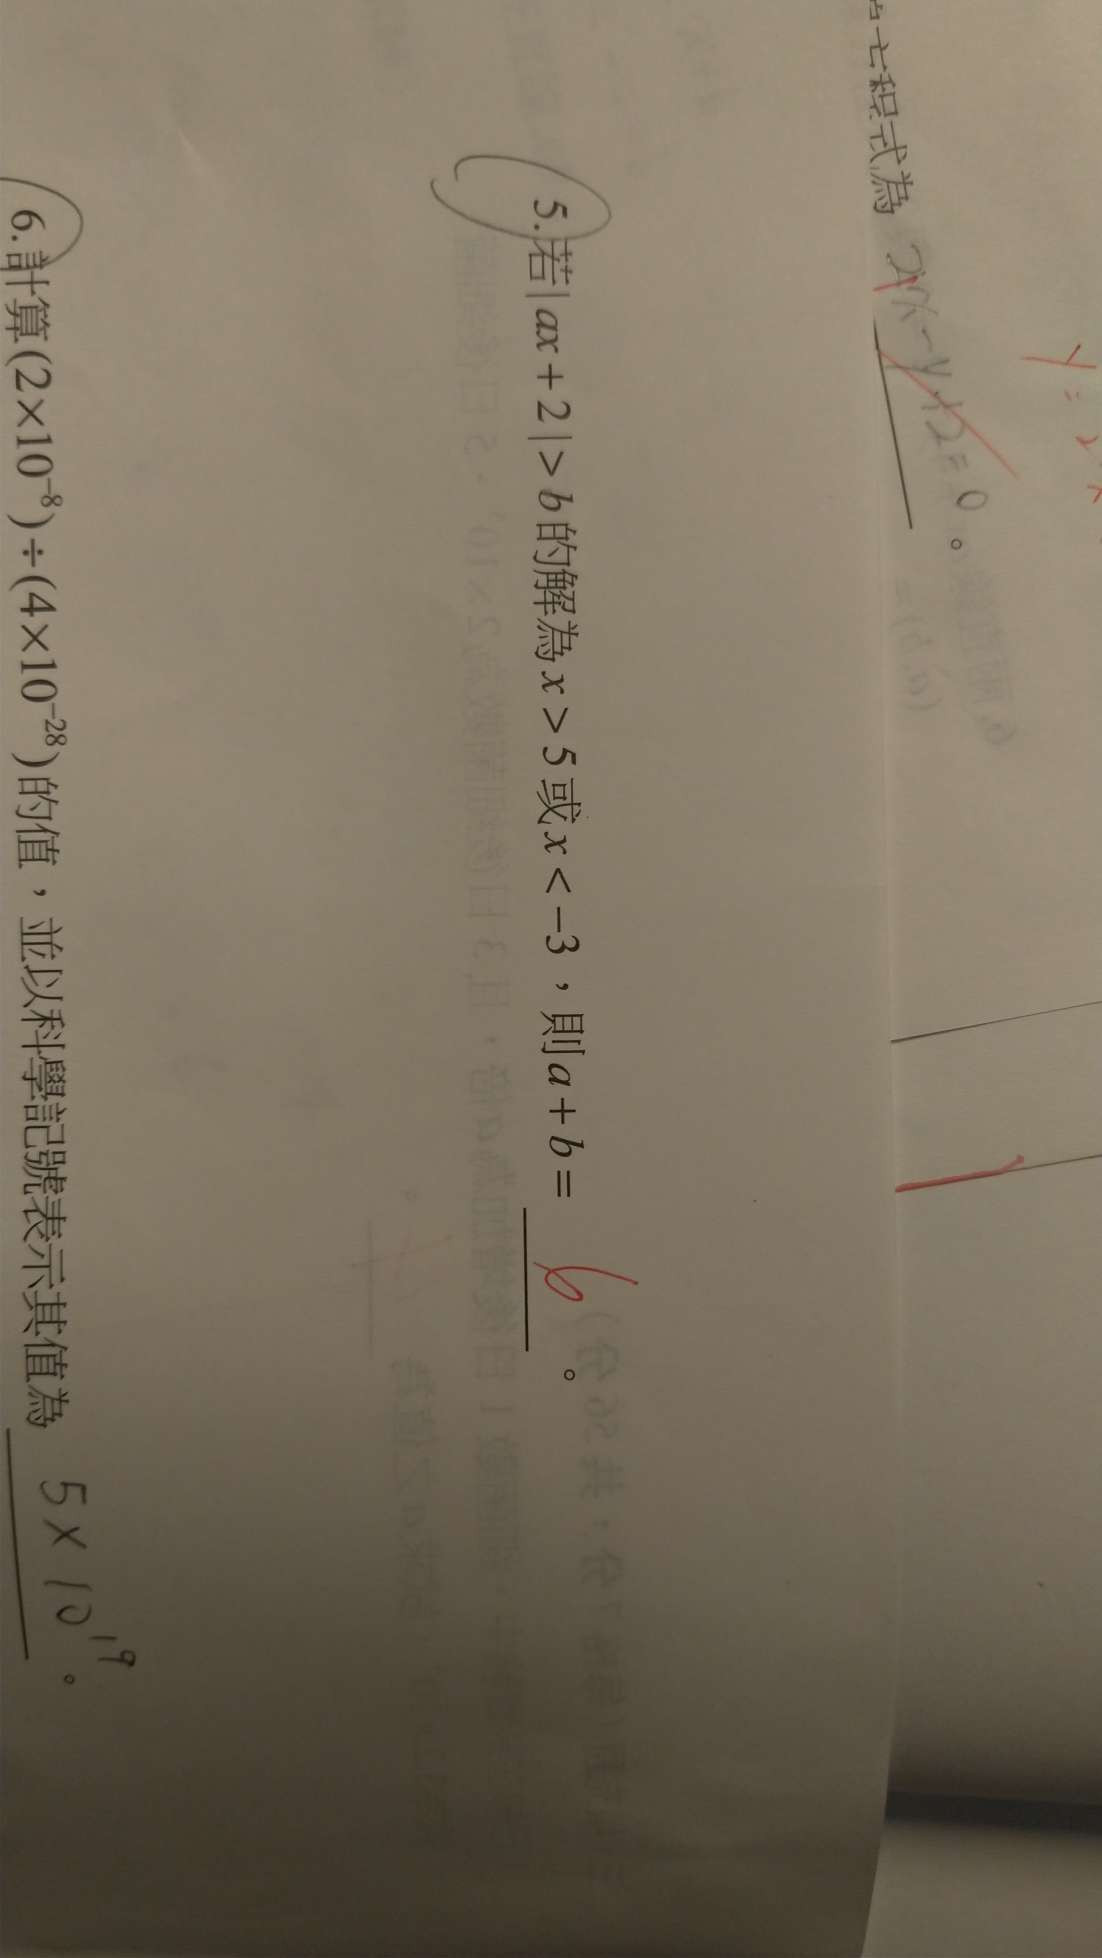 y = 2x
方程式為 2x-y+2=0 。
5.若|ax+2|>b的解為x>5或x<-3，則a+b= 6 。
6.計算(2×10⁻⁸)÷(4×10⁻²⁸)的值，並以科學記號表示其值為 5×10¹⁹ 。